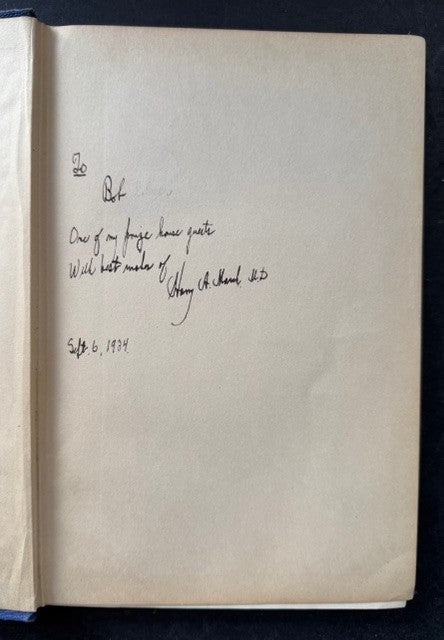 To
Bob
One of my prize house guests
With best wishes of
Harry A. March M.D
Sept. 6, 1934